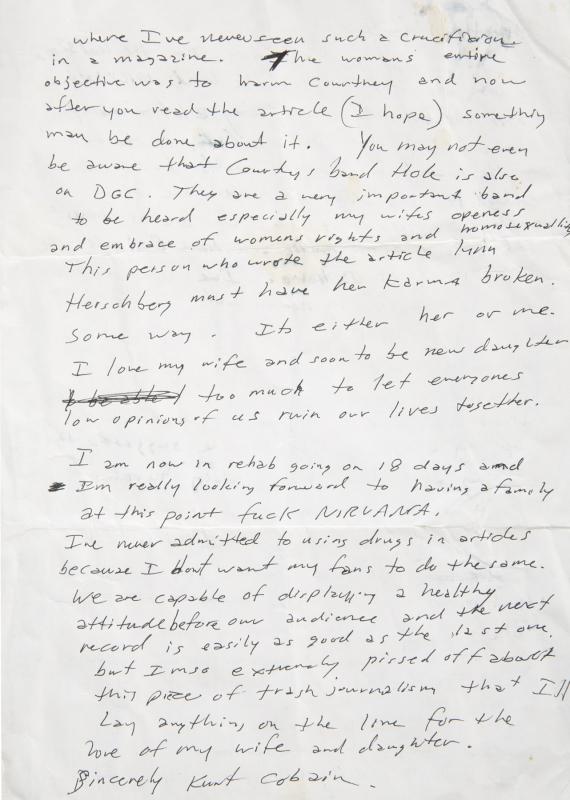 where I've never seen such a crucifixion
in a magazine. The womans entire
objective was to harm Courtney and now
after you read the article (I hope) something
may be done about it. You may not even
be aware that Courtys band Hole is also
on DGC. They are a very important band
to be heard especially my wifes openess
and embrace of womens rights and homosexuality
This person who wrote the article lynn
Herschberg must have her Karma broken.
Some way. Its either her or me.
I love my wife and soon to be new daughter
too much to let everyones
low opinions of us ruin our lives together.
I am now in rehab going on 18 days and
Im really looking forward to having a family
at this point fuck NIRVANA.
I've never admitted to using drugs in articles
because I dont want my fans to do the same.
We are capable of displaying a healthy
attitude before our audience and the next
record is easily as good as the last one.
but I'm so extremely pissed off about
this piece of trash journalism that I'll
Lay anything on the line for the
love of my wife and daughter.
Sincerely Kurt Cobain.